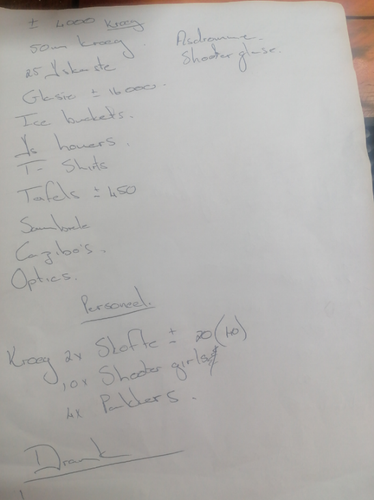 ± 4000 Kroeg
50m Kroeg.
25 Yskaste
Glasie ± 16000.
Ice buckets.
Ys houers.
T- Shirts
Tafels ± 450
Gazibo's.
Optics.
Shooter glase.
Personeel.
Kroeg 2x Skofte ± 20 (40)
10x Shooter girls
4x Pakkers.
Drank